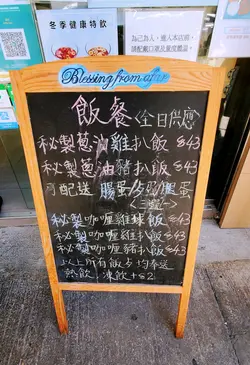 冬季健康特飲
為己為人，進入本店前，
請配戴口罩及量度體溫。
Blessing from
飯餐 <全日供應>
秘製葱油雞扒飯 $43
秘製葱油豬扒飯 $43
可配送 腸蛋/
<三選一>
秘製咖喱雞球飯 $43
秘製咖喱雞扒飯 $43
秘製咖喱豬扒飯 $43
以上所有飯盒均奉送
熱飲, 凍飲+$2